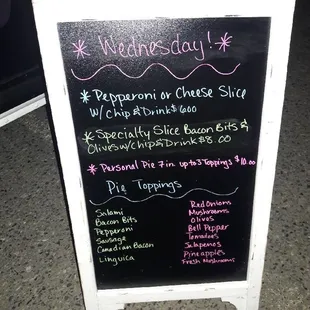 * Wednesday! *
* Pepperoni or Cheese Slice
w/ Chip & Drink $6.00
* Specialty Slice Bacon Bits &
Olives w/ chip & Drink $8.00
* Personal Pie 7in up to 3 Toppings $10.00
Pie Toppings
Salami
Bacon Bits
Pepperoni
Sausage
Canadian Bacon
Linguica
Red Onions
Mushrooms
Olives
Bell Pepper
Tomatoes
Jalapenos
Pineapples
Fresh Mushrooms